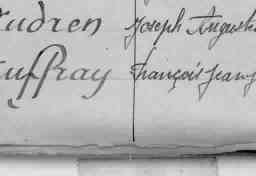 Audren Joseph Auguste
Auffray François Jean